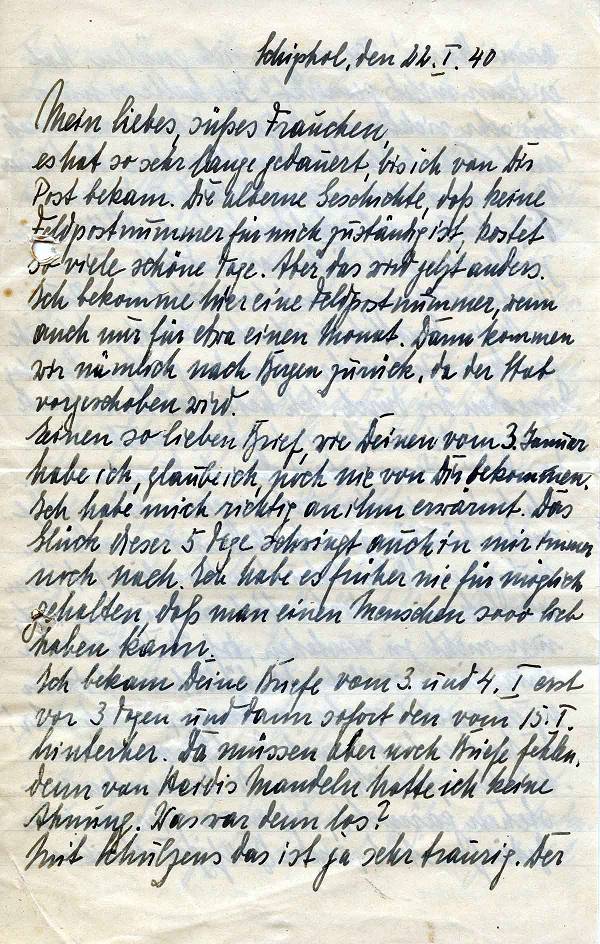 Schiphol, den 22. I. 40
Mein liebes, süßes Frauchen,
es hat so sehr lange gedauert, bis ich von Dir
Post bekam. Die alberne Geschichte, daß keine
Feldpostnummer für mich zuständig ist, kostet
so viele schöne Tage. Aber das wird jetzt anders.
Ich bekomme hier eine Feldpostnummer, wenn
auch nur für etwa einen Monat. Dann kommen
wir nämlich nach Bergen zurück, da der Stab
vorgeschoben wird.
Einen so lieben Brief, wie Deinen vom 3. Januar
habe ich, glaube ich, noch nie von Dir bekommen.
Ich habe mich richtig an ihm erwärmt. Das
Glück dieser 5 Tage schwingt auch in mir immer
noch nach. Ich habe es früher nie für möglich
gehalten, daß man einen Menschen sooo lieb
haben kann.
Ich bekam Deine Briefe vom 3. und 4. I erst
vor 3 Tagen und dann sofort den vom 15. I.
hinterher. Da müssen aber noch Briefe fehlen,
denn von Heidis Mandeln hatte ich keine
Ahnung. Was war denn los?
Mit Schulzens das ist ja sehr traurig. Der